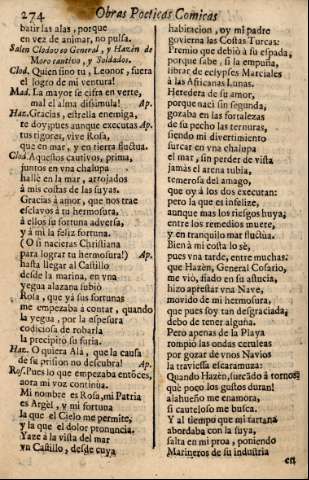 274 Obras Poeticas Comicas
batir las alas, porque
en vez de animar, no pulsa.
Salen Clodoveo General, y Hazèn de
Moro cautivo, y Soldados.
Clod. Quien sino tu, Leonor, fuera
el logro de mi ventura!
Mad. La mayor se cifra en verte,
mal el alma dissimula! Ap.
Haz. Gracias, estrella enemiga,
te doy, pues aunque executas Ap.
tus rigores, vive Rosa,
que en mar, y en tierra fluctùa.
Clod. Aquestos cautivos, prima,
juntos en vna chalupa
hallè en la mar, arrojados
à mis costas de las suyas.
Gracias à amor, que nos trae
esclavos à tu hermosura,
à ellos su fortuna adversa,
y à mi la feliz fortuna.
(O si nacieras Christiana
para lograr tu hermosura!) Ap.
hasta llegar al Castillo
desde la marina, en vna
yegua alazana subiò
Rosa, que yà sus fortunas
me empezaba à contar, quando
la yegua, por la espesura
codiciosa de robarla
la precipitò su furia.
Haz. O quiera Alà, que la causa
de su prision no descubra! Ap.
Ros. Pues lo que empezaba entònces,
aora mi voz continùa.
Mi nombre es Rosa, mi Patria
es Argèl, y mi fortuna
la que el Cielo me permite,
y la que el dolor pronuncia.
Yaze à la vista del mar
vn Castillo, desde cuya
habitacion, oy mi padre
govierna las Costas Turcas:
Premio que debiò à su espada,
porque sabe, si la empuña,
librar de eclypses Marciales
à las Africanas Lunas.
Heredera de su amor,
porque nacì sin segunda,
gozaba en las fortalezas
de su pecho las ternuras,
siendo mi divertimiento
surcar en vna chalupa
el mar, sin perder de vista
jamàs el arena tubia,
temerosa del amago,
que oy à los dos executan:
pero la que es infelize,
aunque mas los riesgos huya,
entre los remedios muere,
y en tranquilo mar fluctùa.
Bien à mi costa lo sè,
pues vna tarde, entre muchas
que Hazèn, General Cosario,
me viò, fiado en su astucia,
hizo aprestar vna Nave,
movido de mi hermosura,
que pues soy tan desgraciada,
debo de tener alguna.
Pero apenas de la Playa
rompiò las ondas ceruleas
por gozar de vnos Navios
la traviessa escaramuza:
Quando Hazèn, surcàdo à tornos
què poco los gustos duran!
alahueño me enamora,
si cauteloso me busca.
Y al tiempo que mi tartana
abordaba con la suya,
salta en mi proa, poniendo
Marineros de su industria
en